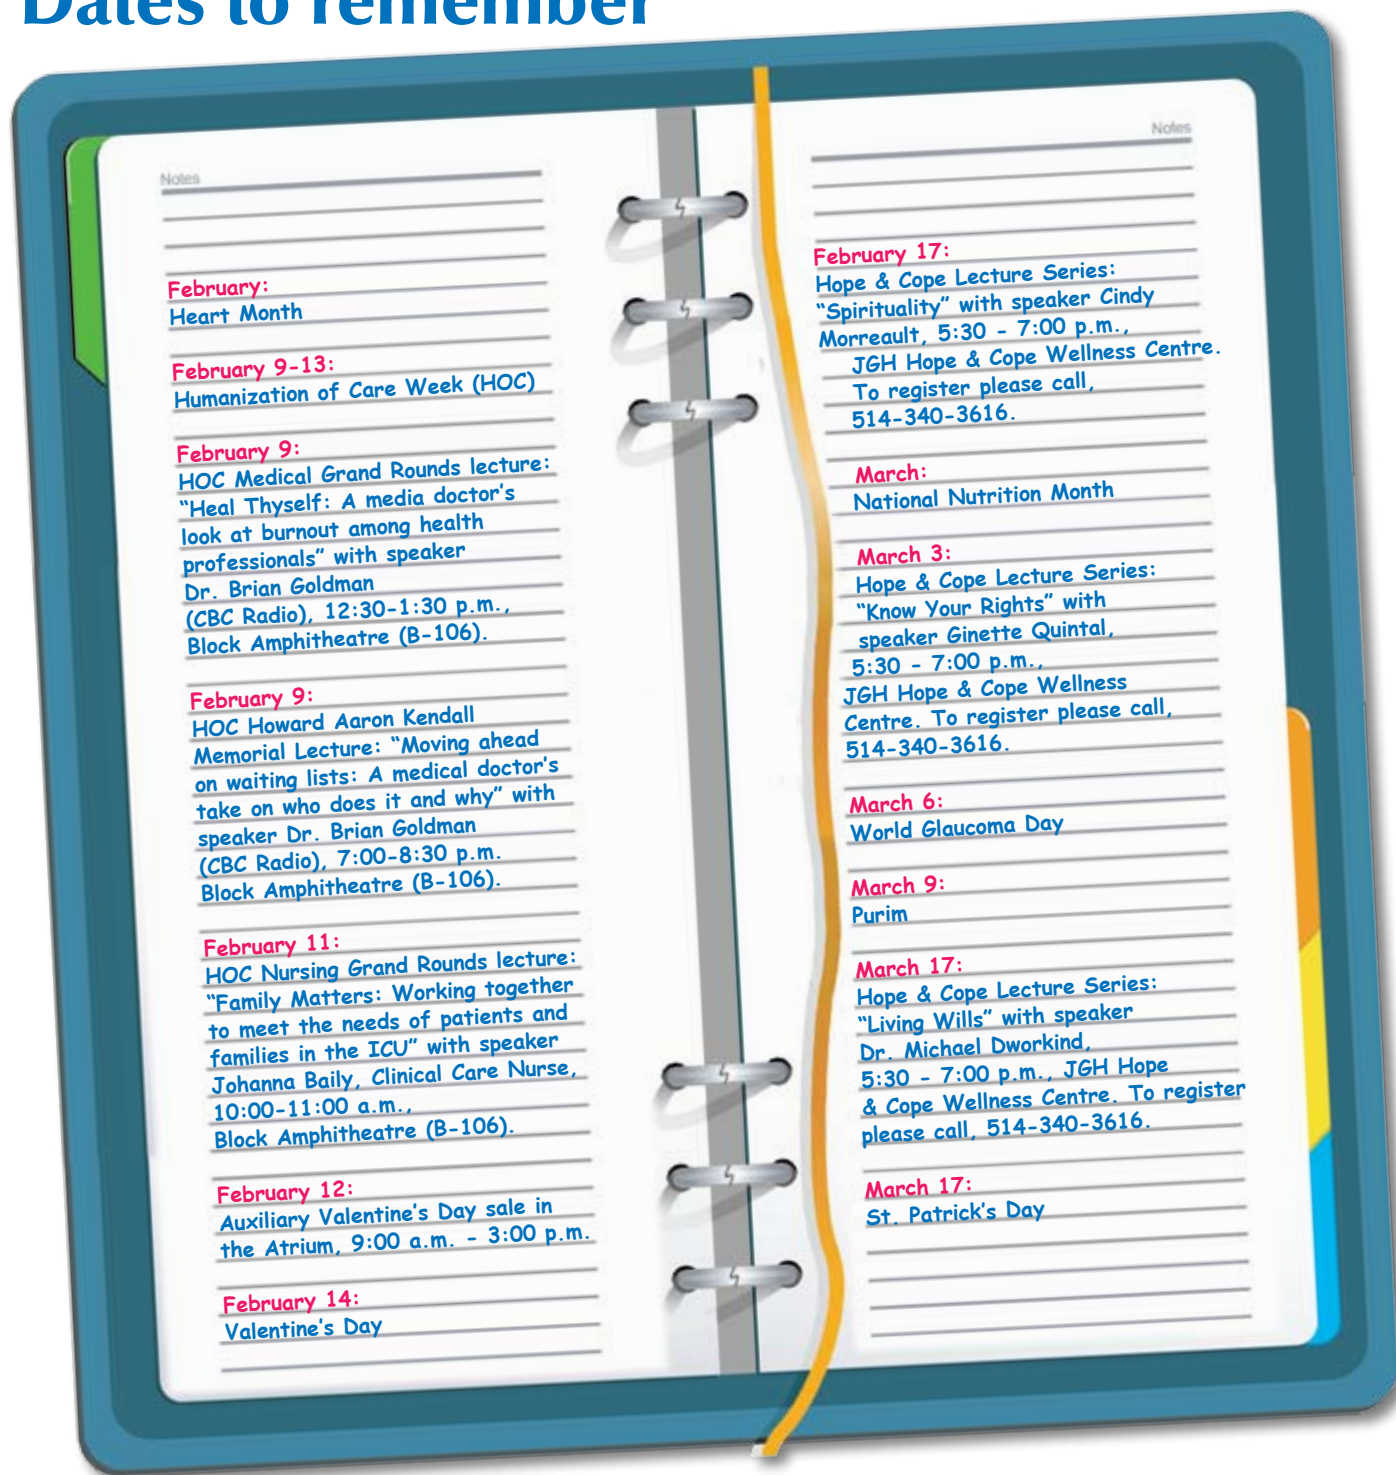 Dates to remember
Notes
February:
Heart Month
February 9-13:
Humanization of Care Week (HOC)
February 9:
HOC Medical Grand Rounds lecture:
“Heal Thyself: A media doctor’s
look at burnout among health
professionals” with speaker
Dr. Brian Goldman
(CBC Radio), 12:30-1:30 p.m.,
Block Amphitheatre (B-106).
February 9:
HOC Howard Aaron Kendall
Memorial Lecture: “Moving ahead
on waiting lists: A medical doctor’s
take on who does it and why” with
speaker Dr. Brian Goldman
(CBC Radio), 7:00-8:30 p.m.
Block Amphitheatre (B-106).
February 11:
HOC Nursing Grand Rounds lecture:
“Family Matters: Working together
to meet the needs of patients and
families in the ICU” with speaker
Johanna Baily, Clinical Care Nurse,
10:00-11:00 a.m.,
Block Amphitheatre (B-106).
February 12:
Auxiliary Valentine’s Day sale in
the Atrium, 9:00 a.m. - 3:00 p.m.
February 14:
Valentine’s Day
Notes
February 17:
Hope & Cope Lecture Series:
“Spirituality” with speaker Cindy
Morreault, 5:30 - 7:00 p.m.,
JGH Hope & Cope Wellness Centre.
To register please call,
514-340-3616.
March:
National Nutrition Month
March 3:
Hope & Cope Lecture Series:
“Know Your Rights” with
speaker Ginette Quintal,
5:30 - 7:00 p.m.,
JGH Hope & Cope Wellness
Centre. To register please call,
514-340-3616.
March 6:
World Glaucoma Day
March 9:
Purim
March 17:
Hope & Cope Lecture Series:
“Living Wills” with speaker
Dr. Michael Dworkind,
5:30 - 7:00 p.m., JGH Hope
& Cope Wellness Centre. To register
please call, 514-340-3616.
March 17:
St. Patrick’s Day